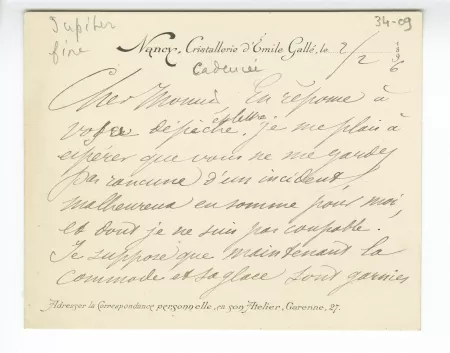 Jupiter
fine
34-09
Nancy, Cristallerie d'Emile Gallé, le 2/2 96
Cher Monsieur En réponse à
votre dépêche, et lettre, je me plais à
espérer que vous ne me gardez
pas rancune d'un incident
malheureux en somme pour moi,
et dont je ne suis pas coupable.
Je suppose que maintenant la
commode et sa glace sont garnies
Adresser la Correspondance personnelle, en son Atelier, Garenne, 27.